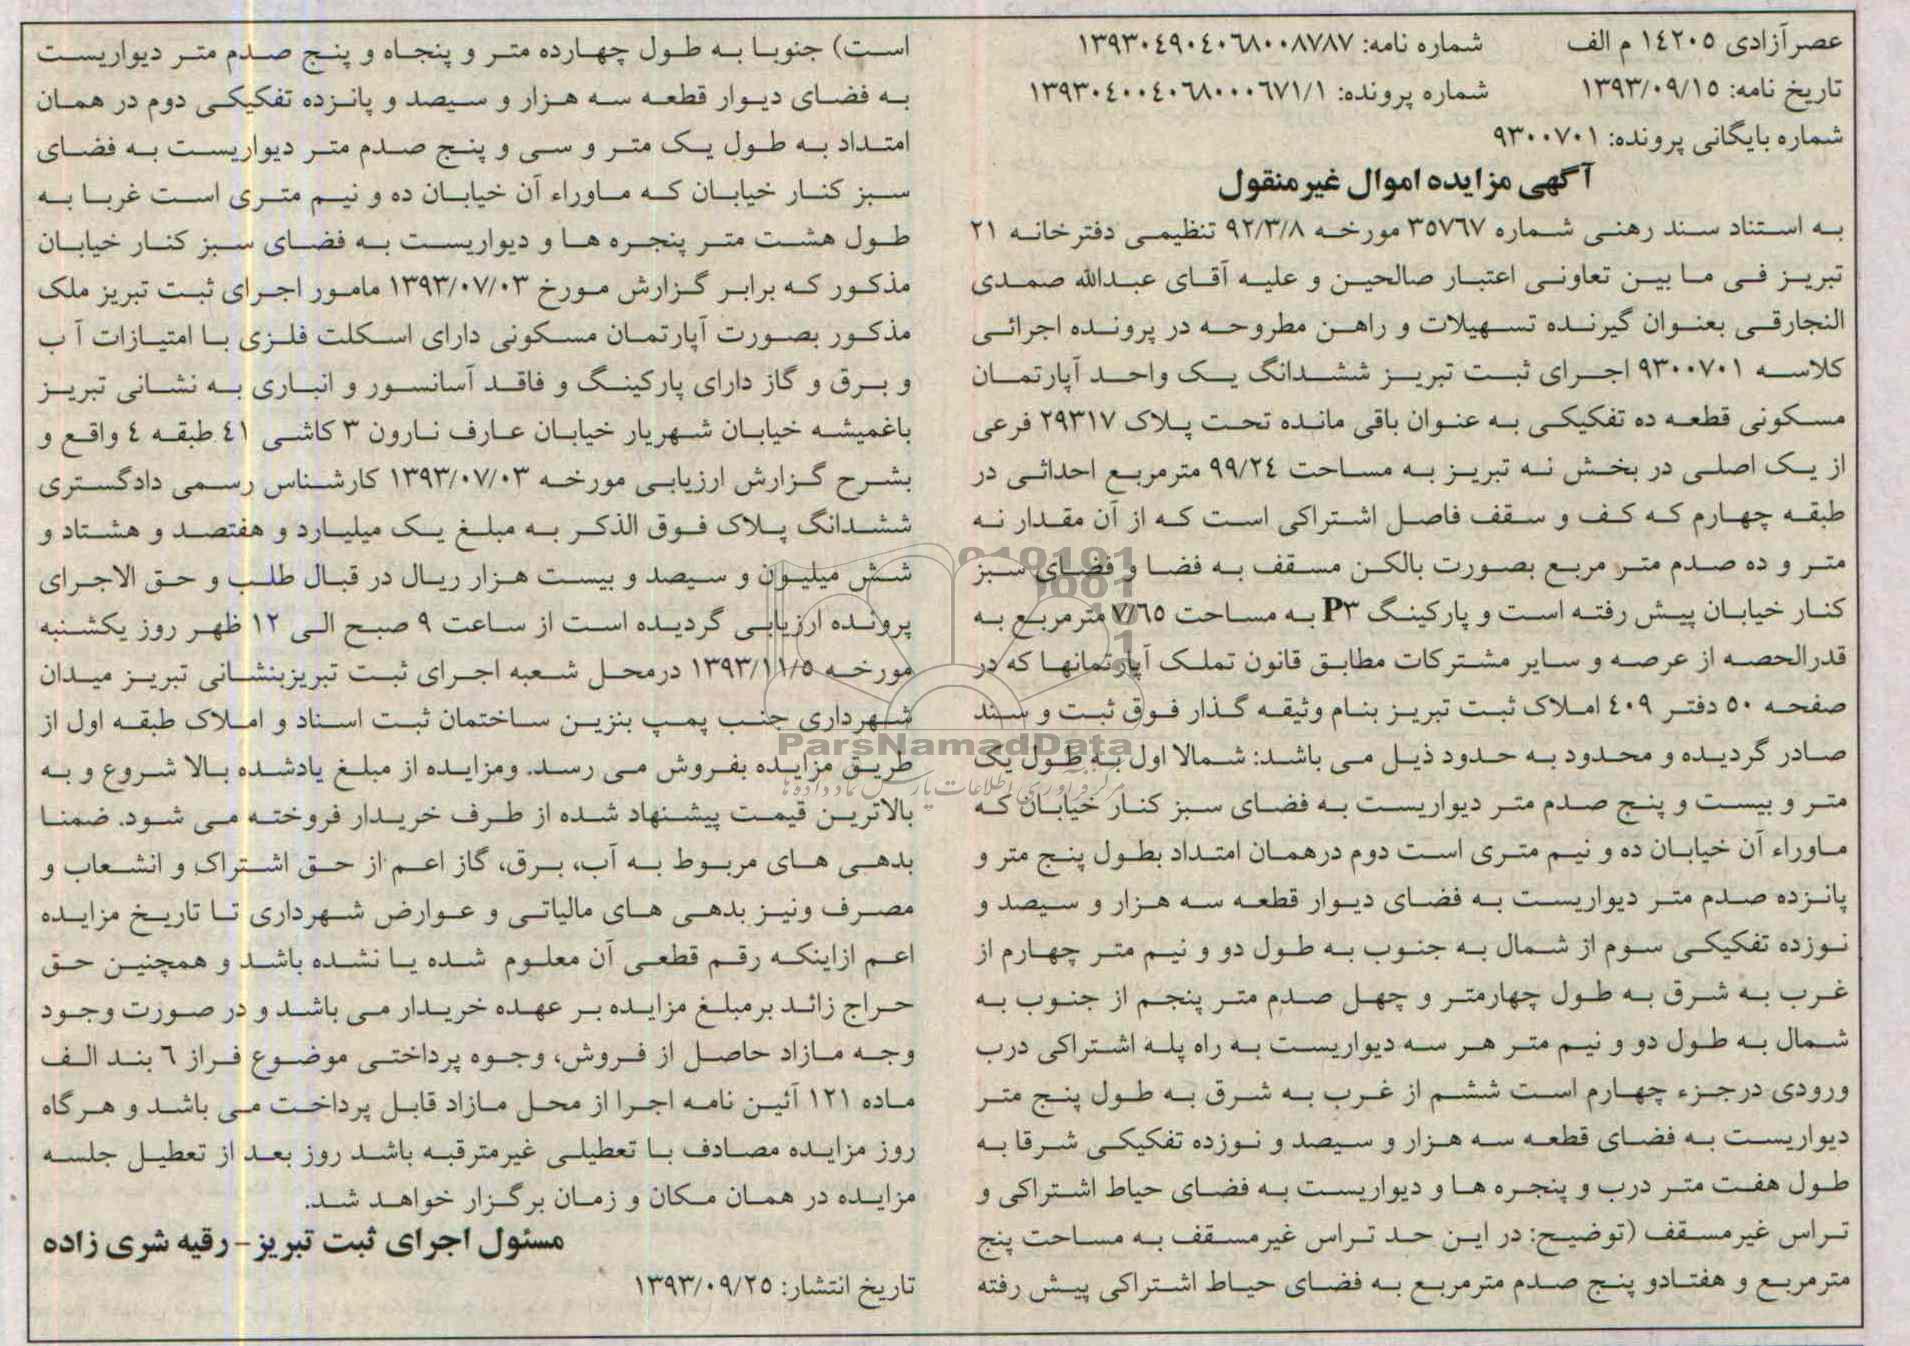 عصر آزادی ۱٤۲۰٥ م الف
شماره نامه: ۱۳۹۳۰٤۹۰٤۰٦۸۰۰۸۷۸۷
تاریخ نامه: ۱۳۹۳/۰۹/۱٥
شماره پرونده: ۱۳۹۳۰٤۰۰٤۰٦۸۰۰۰٦۷۱/۱
شماره بایگانی پرونده: ۹۳۰۰۷۰۱
آگهی مزایده اموال غیر منقول
به استناد سند رهنی شماره ۳٥۷٦۷ مورخه ۹۲/۳/۸ تنظیمی دفترخانه ۲۱
تبریز فی ما بین تعاونی اعتبار صالحین و علیه آقای عبدالله صمدی
النجارقی بعنوان گیرنده تسهیلات و راهن مطروحه در پرونده اجرائی
کلاسه ۹۳۰۰۷۰۱ اجرای ثبت تبریز ششدانگ یک واحد آپارتمان
مسکونی قطعه ده تفکیکی به عنوان باقی مانده تحت پلاک ۲۹۳۱۷ فرعی
از یک اصلی در بخش نه تبریز به مساحت ۹۹/۲٤ مترمربع احداثی در
طبقه چهارم که کف و سقف فاصل اشتراکی است که از آن مقدار نه
متر و ده صدم متر مربع بصورت بالکن مسقف به فضا و فضای سبز
کنار خیابان پیش رفته است و پارکینگ P۳ به مساحت ۷/٦٥ مترمربع به
قدرالحصه از عرصه و سایر مشترکات مطابق قانون تملک آپارتمانها که در
صفحه ٥۰ دفتر ٤۰۹ املاک ثبت تبریز بنام وثیقه گذار فوق ثبت و سند
صادر گردیده و محدود به حدود ذیل می باشد: شمالا اول به طول یک
متر و بیست و پنج صدم متر دیواریست به فضای سبز کنار خیابان که
ماوراء آن خیابان ده و نیم متری است دوم درهمان امتداد بطول پنج متر و
پانزده صدم متر دیواریست به فضای دیوار قطعه سه هزار و سیصد و
نوزده تفکیکی سوم از شمال به جنوب به طول دو و نیم متر چهارم از
غرب به شرق به طول چهارمتر و چهل صدم متر پنجم از جنوب به
شمال به طول دو و نیم متر هر سه دیواریست به راه پله اشتراکی درب
ورودی درجزء چهارم است ششم از غرب به شرق به طول پنج متر
دیواریست به فضای قطعه سه هزار و سیصد و نوزده تفکیکی شرقا به
طول هفت متر درب و پنجره ها و دیواریست به فضای حیاط اشتراکی و
تراس غیرمسقف (توضیح: در این حد تراس غیرمسقف به مساحت پنج
مترمربع و هفتادو پنج صدم مترمربع به فضای حیاط اشتراکی پیش رفته
است) جنوبا به طول چهارده متر و پنجاه و پنج صدم متر دیواریست
به فضای دیوار قطعه سه هزار و سیصد و پانزده تفکیکی دوم در همان
امتداد به طول یک متر و سی و پنج صدم متر دیواریست به فضای
سبز کنار خیابان که ماوراء آن خیابان ده و نیم متری است غربا به
طول هشت متر پنجره ها و دیواریست به فضای سبز کنار خیابان
مذکور که برابر گزارش مورخ ۱۳۹۳/۰۷/۰۳ مامور اجرای ثبت تبریز ملک
مذکور بصورت آپارتمان مسکونی دارای اسکلت فلزی با امتیازات آ ب
و برق و گاز دارای پارکینگ و فاقد آسانسور و انباری به نشانی تبریز
باغمیشه خیابان شهریار خیابان عارف نارون ۳ کاشی ٤۱ طبقه ٤ واقع و
بشرح گزارش ارزیابی مورخه ۱۳۹۳/۰۷/۰۳ کارشناس رسمی دادگستری
ششدانگ پلاک فوق الذکر به مبلغ یک میلیارد و هفتصد و هشتاد و
شش میلیون و سیصد و بیست هزار ریال در قبال طلب و حق الاجرای
پرونده ارزیابی گردیده است از ساعت ۹ صبح الی ۱۲ ظهر روز یکشنبه
مورخه ۱۳۹۳/۱۱/٥ درمحل شعبه اجرای ثبت تبریزبنشانی تبریز میدان
شهرداری جنب پمپ بنزین ساختمان ثبت اسناد و املاک طبقه اول از
طریق مزایده بفروش می رسد. ومزایده از مبلغ یادشده بالا شروع و به
بالاترین قیمت پیشنهاد شده از طرف خریدار فروخته می شود. ضمنا
بدهی های مربوط به آب، برق، گاز اعم از حق اشتراک و انشعاب و
مصرف ونیز بدهی های مالیاتی و عوارض شهرداری تا تاریخ مزایده
اعم ازاینکه رقم قطعی آن معلوم شده یا نشده باشد و همچنین حق
حراج زائد برمبلغ مزایده بر عهده خریدار می باشد و در صورت وجود
وجه مازاد حاصل از فروش، وجوه پرداختی موضوع فراز ٦ بند الف
ماده ۱۲۱ آئین نامه اجرا از محل مازاد قابل پرداخت می باشد و هرگاه
روز مزایده مصادف با تعطیلی غیرمترقبه باشد روز بعد از تعطیل جلسه
مزایده در همان مکان و زمان برگزار خواهد شد.
مسئول اجرای ثبت تبریز - رقیه شری زاده
تاریخ انتشار: ۱۳۹۳/۰۹/۲٥
ParsNamadData
مرکز فرآوری اطلاعات پارس نماد داده ها